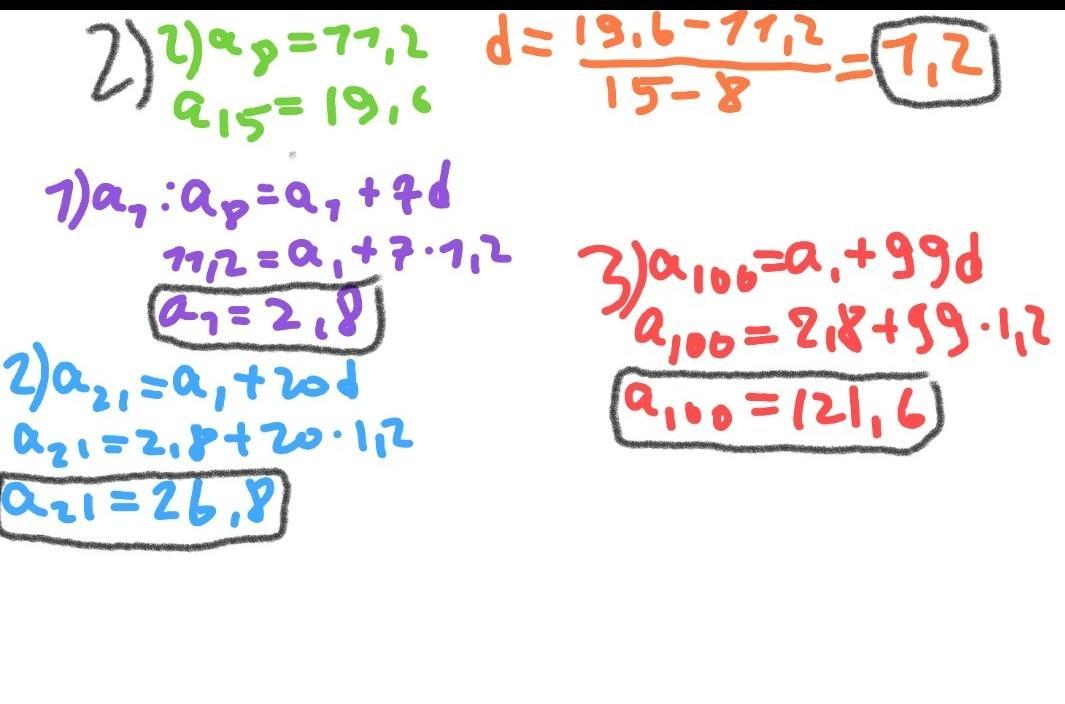 2) 2) a₈ = 11,2
a₁₅ = 19,6
d = (19,6 - 11,2)/(15 - 8) = 1,2
1) a₁ : a₈ = a₁ + 7d
11,2 = a₁ + 7 · 1,2
a₁ = 2,8
2) a₂₁ = a₁ + 20d
a₂₁ = 2,8 + 20 · 1,2
a₂₁ = 26,8
3) a₁₀₀ = a₁ + 99d
a₁₀₀ = 2,8 + 99 · 1,2
a₁₀₀ = 121,6